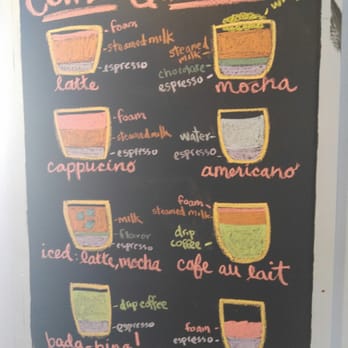 foam
steamed milk
espresso
latte
steamed
milk
chocolate
espresso
mocha
foam
steamed milk
espresso
cappucino
water
espresso
americano
milk
flavor
espresso
iced: latte, mocha
foam
steamed milk
drip
coffee
cafe au lait
drip coffee
espresso
bada-bing!
foam
espresso